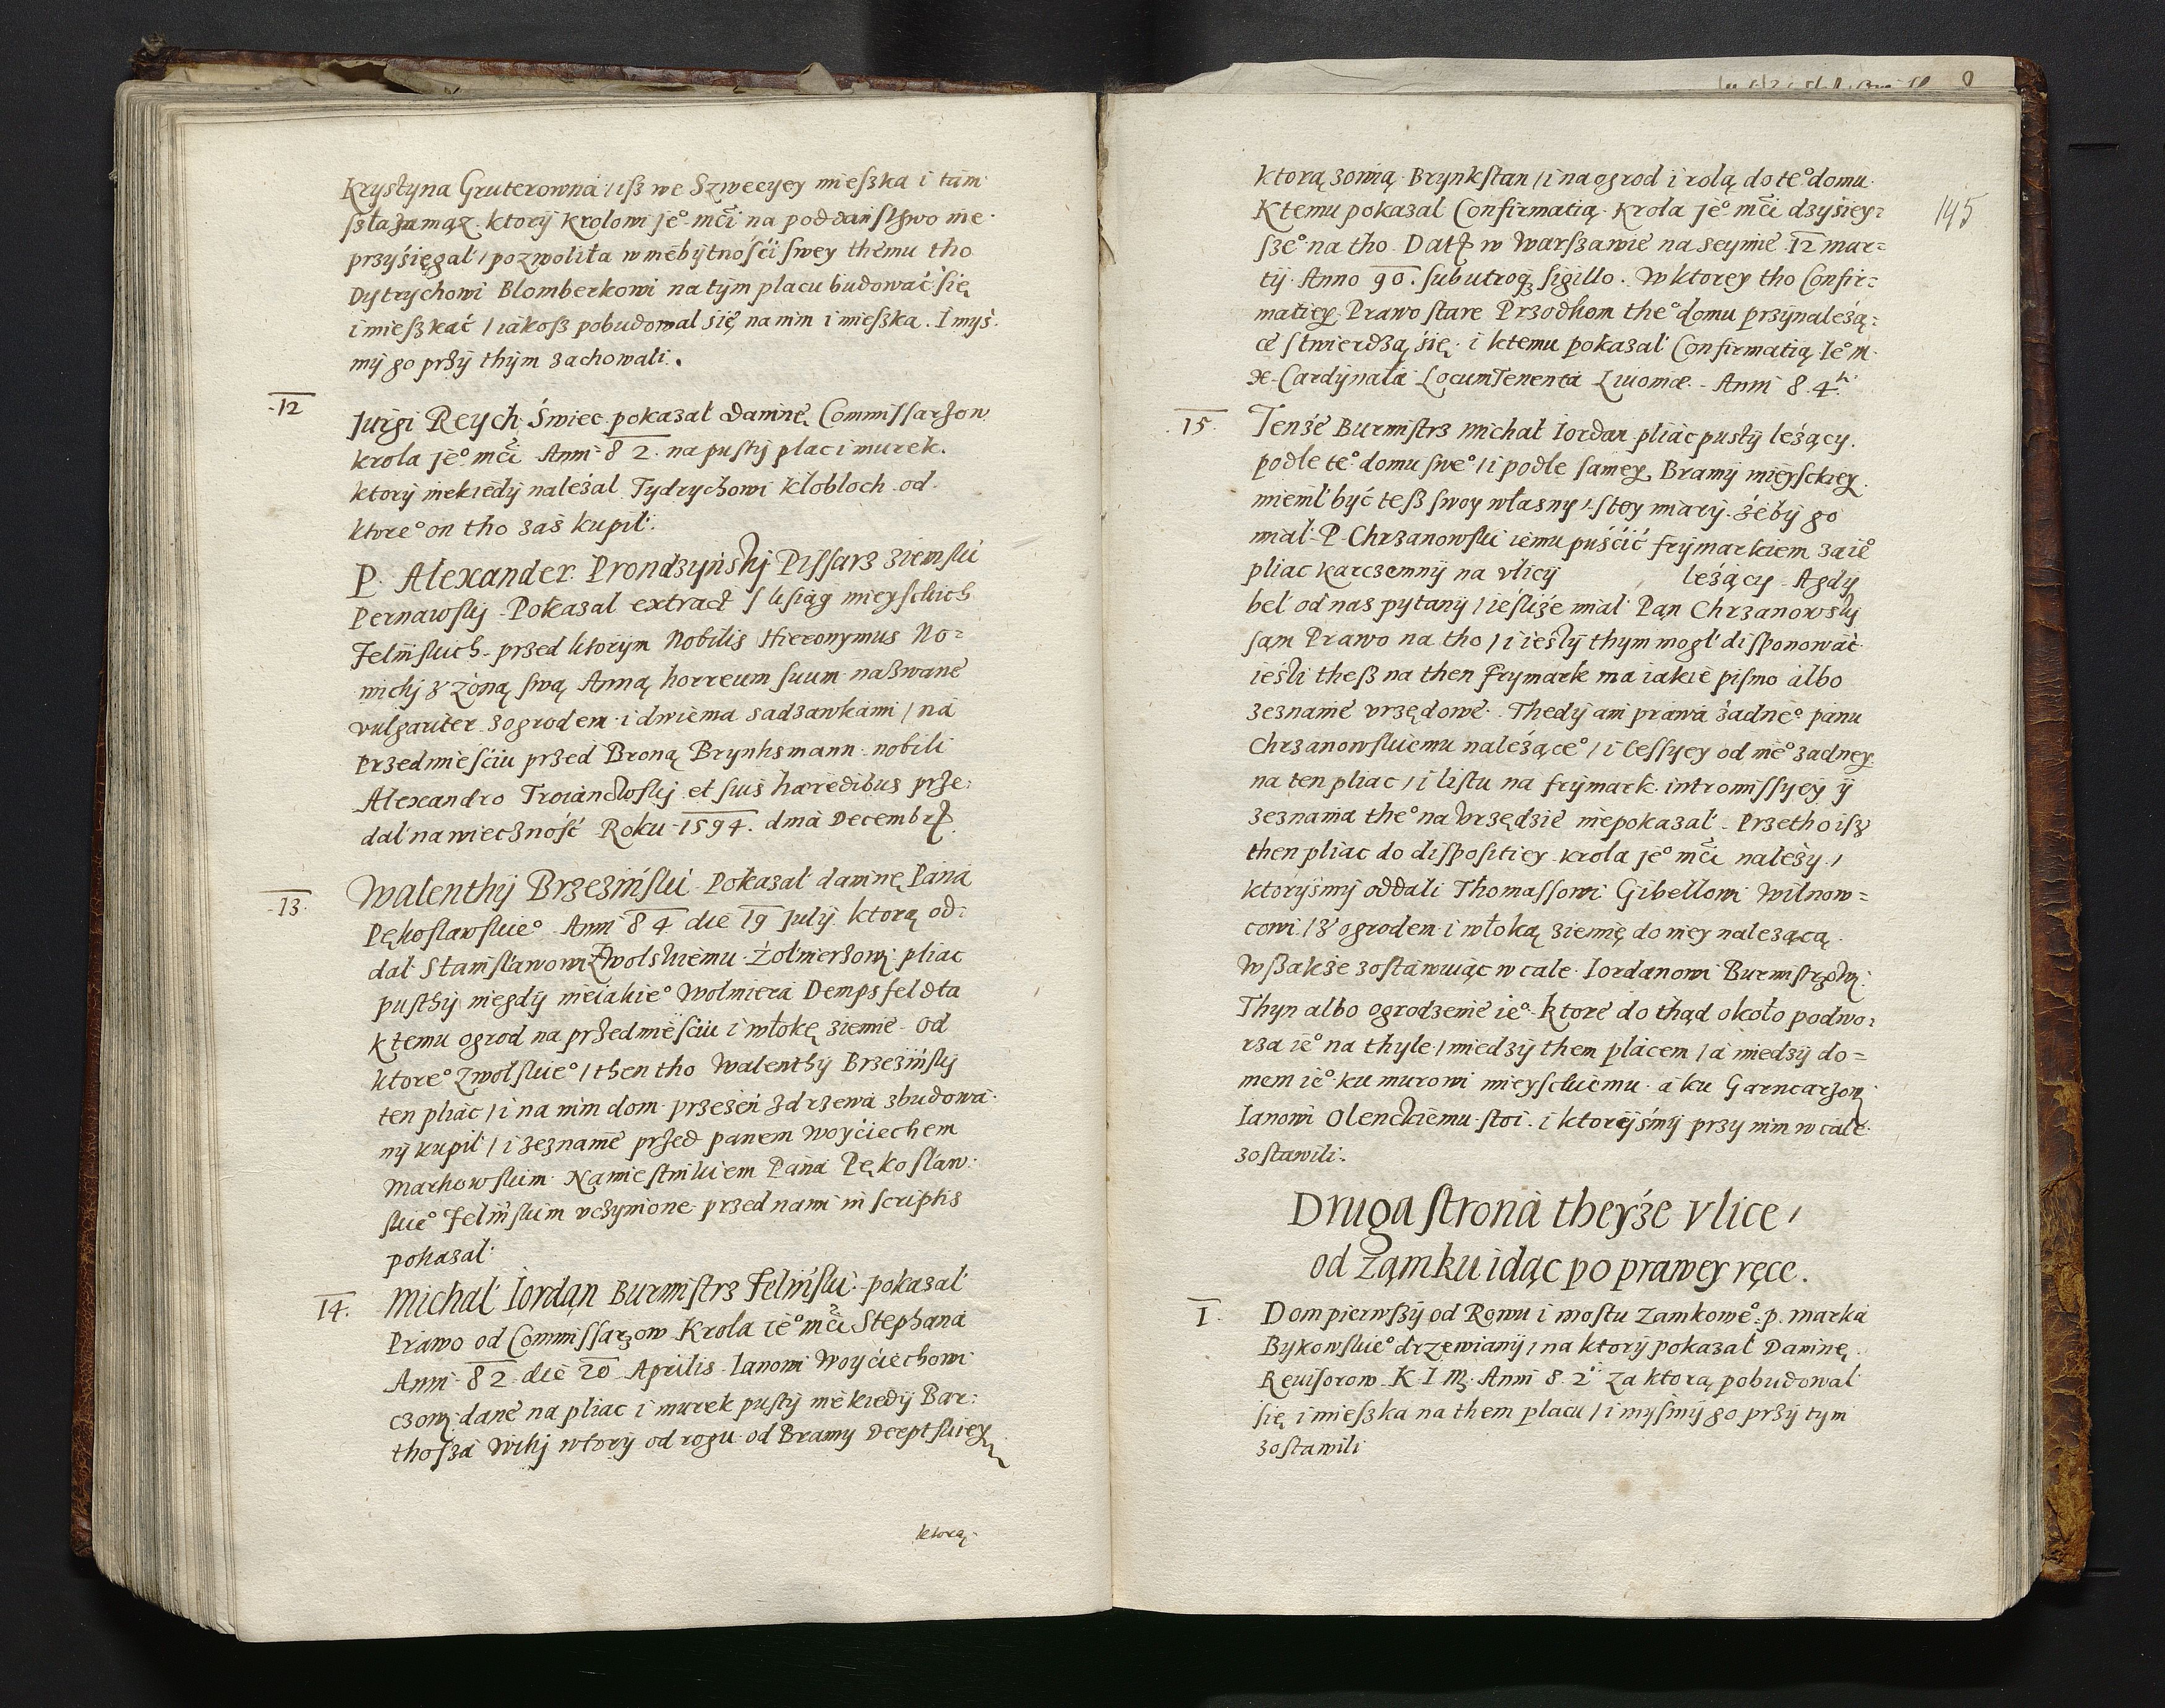 Krystyna Gruterowna / isz we Szweciyey mieszka i tam
szła zamąz ktory Krolowi Je° Mći na poddaństwo nie
przysięgał / pozwoliła w niebytnośći swey themu tho
Dytrychowi Blomberkowi na tym placu budować się
i mieszkać / iakosz pobudował się na nim i mieszka. I mys
my go przy thym zachowali.
12 Jurgi Reych Swiec pokazał daninę Commissarzow
krola Je° Mći Anni 82. na pusty plac i murek.
ktory niekiedy należał Tydrychowi Klobloch od
ktore° on tho zas kupił.
P. Alexander Prondzyński Pissarz ziemski
Pernawsky Pokazal extract s ksiąg mieyskich
Felinskich przed ktorym Nobilis Hieronymus No=
wicky z żoną swą Anną horreum suum nazwane
vulgariter z ogrodem i dwiema sadzawkami / na
Przedmiesciu przed Broną Brynksmann nobili
Alexandro Troianowsky et suis hæredibus prze=
dal na wieczność Roku 1594. dnia Decembr
13. Walenthy Brzezinski Pokazal daninę Pana
Pękoslawskie° Anni 84 die 19 July ktorą od=
dał Stanisławowi Zwolskiemu Żołnierzowi pliac
pusthy niegdy nieiakie° Wolmiera Dempsfeldta
k temu ogrod na przedmiesciu i włokę ziemie od
ktore° Zwolskie° / then tho Walenthy Brzezinsky
ten pliac / i na nim dom przezeń z drzewa zbudowa
ny kupil / i zeznanie przed panem Woyciechem
Markowskim Namiestnikiem Pana Pękoslaw=
skie° Felinskim uczynione przed nami in scriptis
pokazal
14. Michał Jordan Burmistrz Felinski pokazal
Prawo od Commissarzow Krola Je° Mći Stephana
Anni 82 die 20 Aprilis Janowi Woyciechowi
czowi dane na pliac i murek pusty niekiedy Bar=
thosza Wiky wtory od rogu od Bramy Derptskiey
ktorą
145
ktorą zowią Brynkstan / i na ogrod i rolą do te° domu
K temu pokazal Confirmatią Krola Je° Mći dzysiey=
sze° na tho Dat w Warszawie na seymie 12 mar=
tij Anno 90. sub utroq sigillo. W ktorey tho Confir=
matiey Prawo stare Przodkom the° domu przynależą=
ce stwierdzą się i ktemu pokazal Confirmatią Je° M
X Cardynala LocumTenenta Livoniæ Anni 84.
15 Tenże Burmistrz Michał Jordan pliac pusty leżący
podle te° domu swe° / i podle samey Bramy mieysckiey
mienił być tesz swoy własny / s tey miary żeby go
miał P. Chrzanowski iemu puśćić frymarkiem za ie°
pliac karczemny na vlicy leżący A gdy
bel od nas pytany / ieslize miał Pan Chrzanowsky
sam Prawo na tho / i iesly thym mogł disponować
iesli thesz na then frymark ma iakie pismo albo
zeznanie vrzędowe. Thedy ani prawa żadne° panu
Chrzanowskiemu należące° / i cessyey od nie° zadney
na ten pliac / i listu na frymark intromissyey y
zeznania the° na vrzędzie niepokazal. Przetho isz
then pliac do dispositiey krola Je° Mći należy /
ktorysmy oddali Thomassowi Gibellowi Wilnow=
cowi / z ogrodem i włoką ziemię do niey nalezącą
Wszakże zostawuiąc w cale Jordanowi Burmistrzowi
Thyn albo ogrodzenie ie° ktore do thąd około podwo=
rza ie° na thyle / miedzy them placem / a miedzy do=
mem ie° ku murowi mieysckiemu a ku Garncarzowi
Janowi Olenckiemu stoi. i ktoreysmy przy nim w cale
zostawili.
Druga strona theyże vlice /
od Zamku idąc po prawey ręce.
1. Dom pierwszy od Rowu i mostu Zamkowe° p. Marka
Bykowskie° drzewiany / na ktory pokazal Daninę
Rewisorow K I M Anni 82 Za ktorą pobudowal
się i mieszka na them placu / i mysmy go przy tym
zostawili